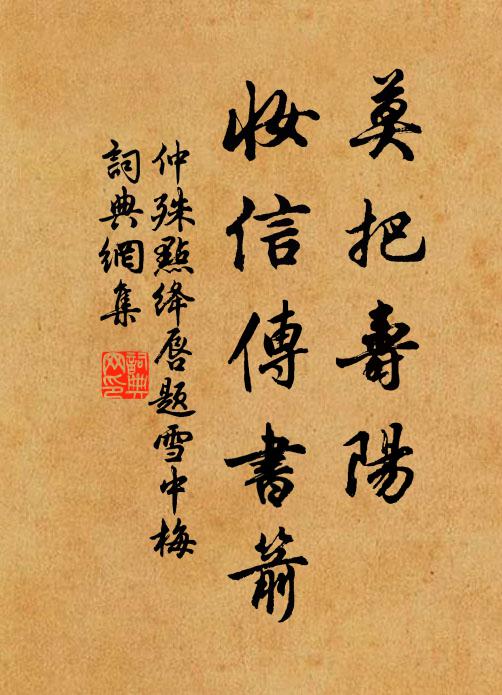 莫把壽陽
妝信傳書箭
仲殊點絳唇題雪中梅
詞典網集
詞典网印